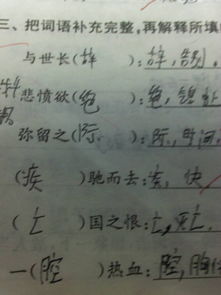 三、把词语补充完整,再解释所填
与世长(辞):辞,告别
悲愤欲(绝):绝,
弥留之(际):际,时间
(疾)驰而去:疾,快
(亡)国之恨:亡,灭亡
一(腔)热血:腔,胸